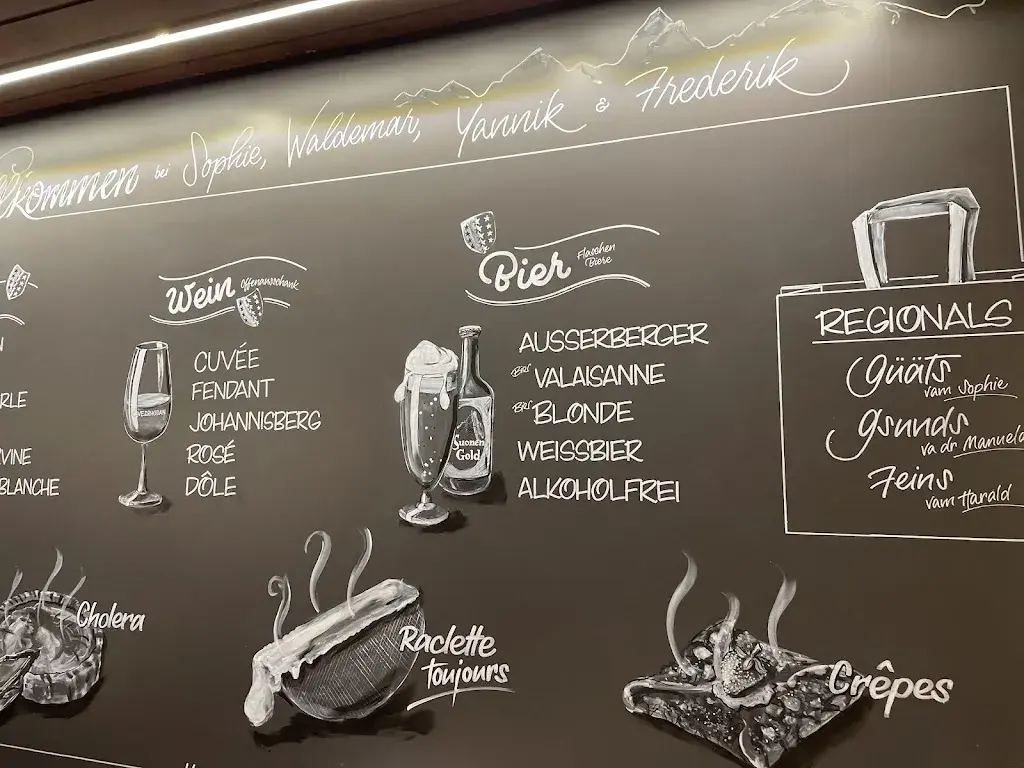 kommen bei Sophie, Waldemar, Yannik & Frederik
RLE
VINE
BLANCHE
Wein Offenausschank
CUVÉE
FENDANT
JOHANNISBERG
ROSÉ
DÔLE
Bier Flaschen
Biere
AUSSERBERGER
VALAISANNE
BLONDE
WEISSBIER
ALKOHOLFREI
Suonen
Gold
REGIONALS
Güäts
vam Sophie
Gsunds
va dr Manuela
Feins
vam Harald
Cholera
Raclette
toujours
Crêpes